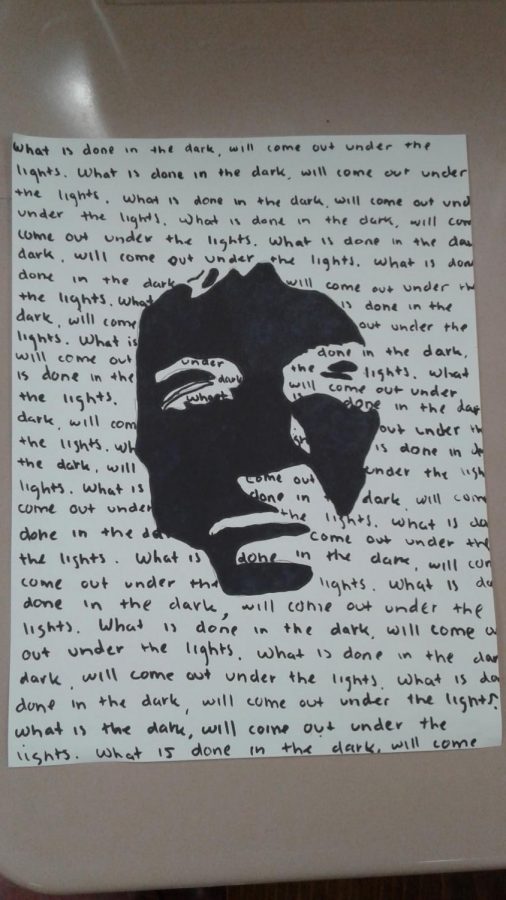 What is done in the dark, will come out under the
lights. What is done in the dark, will come out under
the lights. What is done in the dark, will come out und
under the lights. What is done in the dark, will com
come out under the lights. What is done in the dar
dark, will come out under the lights. What is don
done in the dark will come out under th
the lights. What is done in the
dark, will come out under the
lights. What is done in the dark,
will come out under the lights. What
is done in the dark will come out under
the lights. What done in the dar
dark, will com out under th
the lights. Wh is done in
the dark, will come out under the ligh
lights. What is done in dark, will come
come out under the lights. What is do
done in the da come out under the
the lights. What is done in the dark, will com
come out under the lights. What is do
done in the dark, will come out under the
lights. What is done in the dark, will come o
out under the lights. What is done in the dar
dark, will come out under the lights. What is do
done in the dark, will come out under the lights.
What is the dark, will come out under the
lights. What is done in the dark, will come